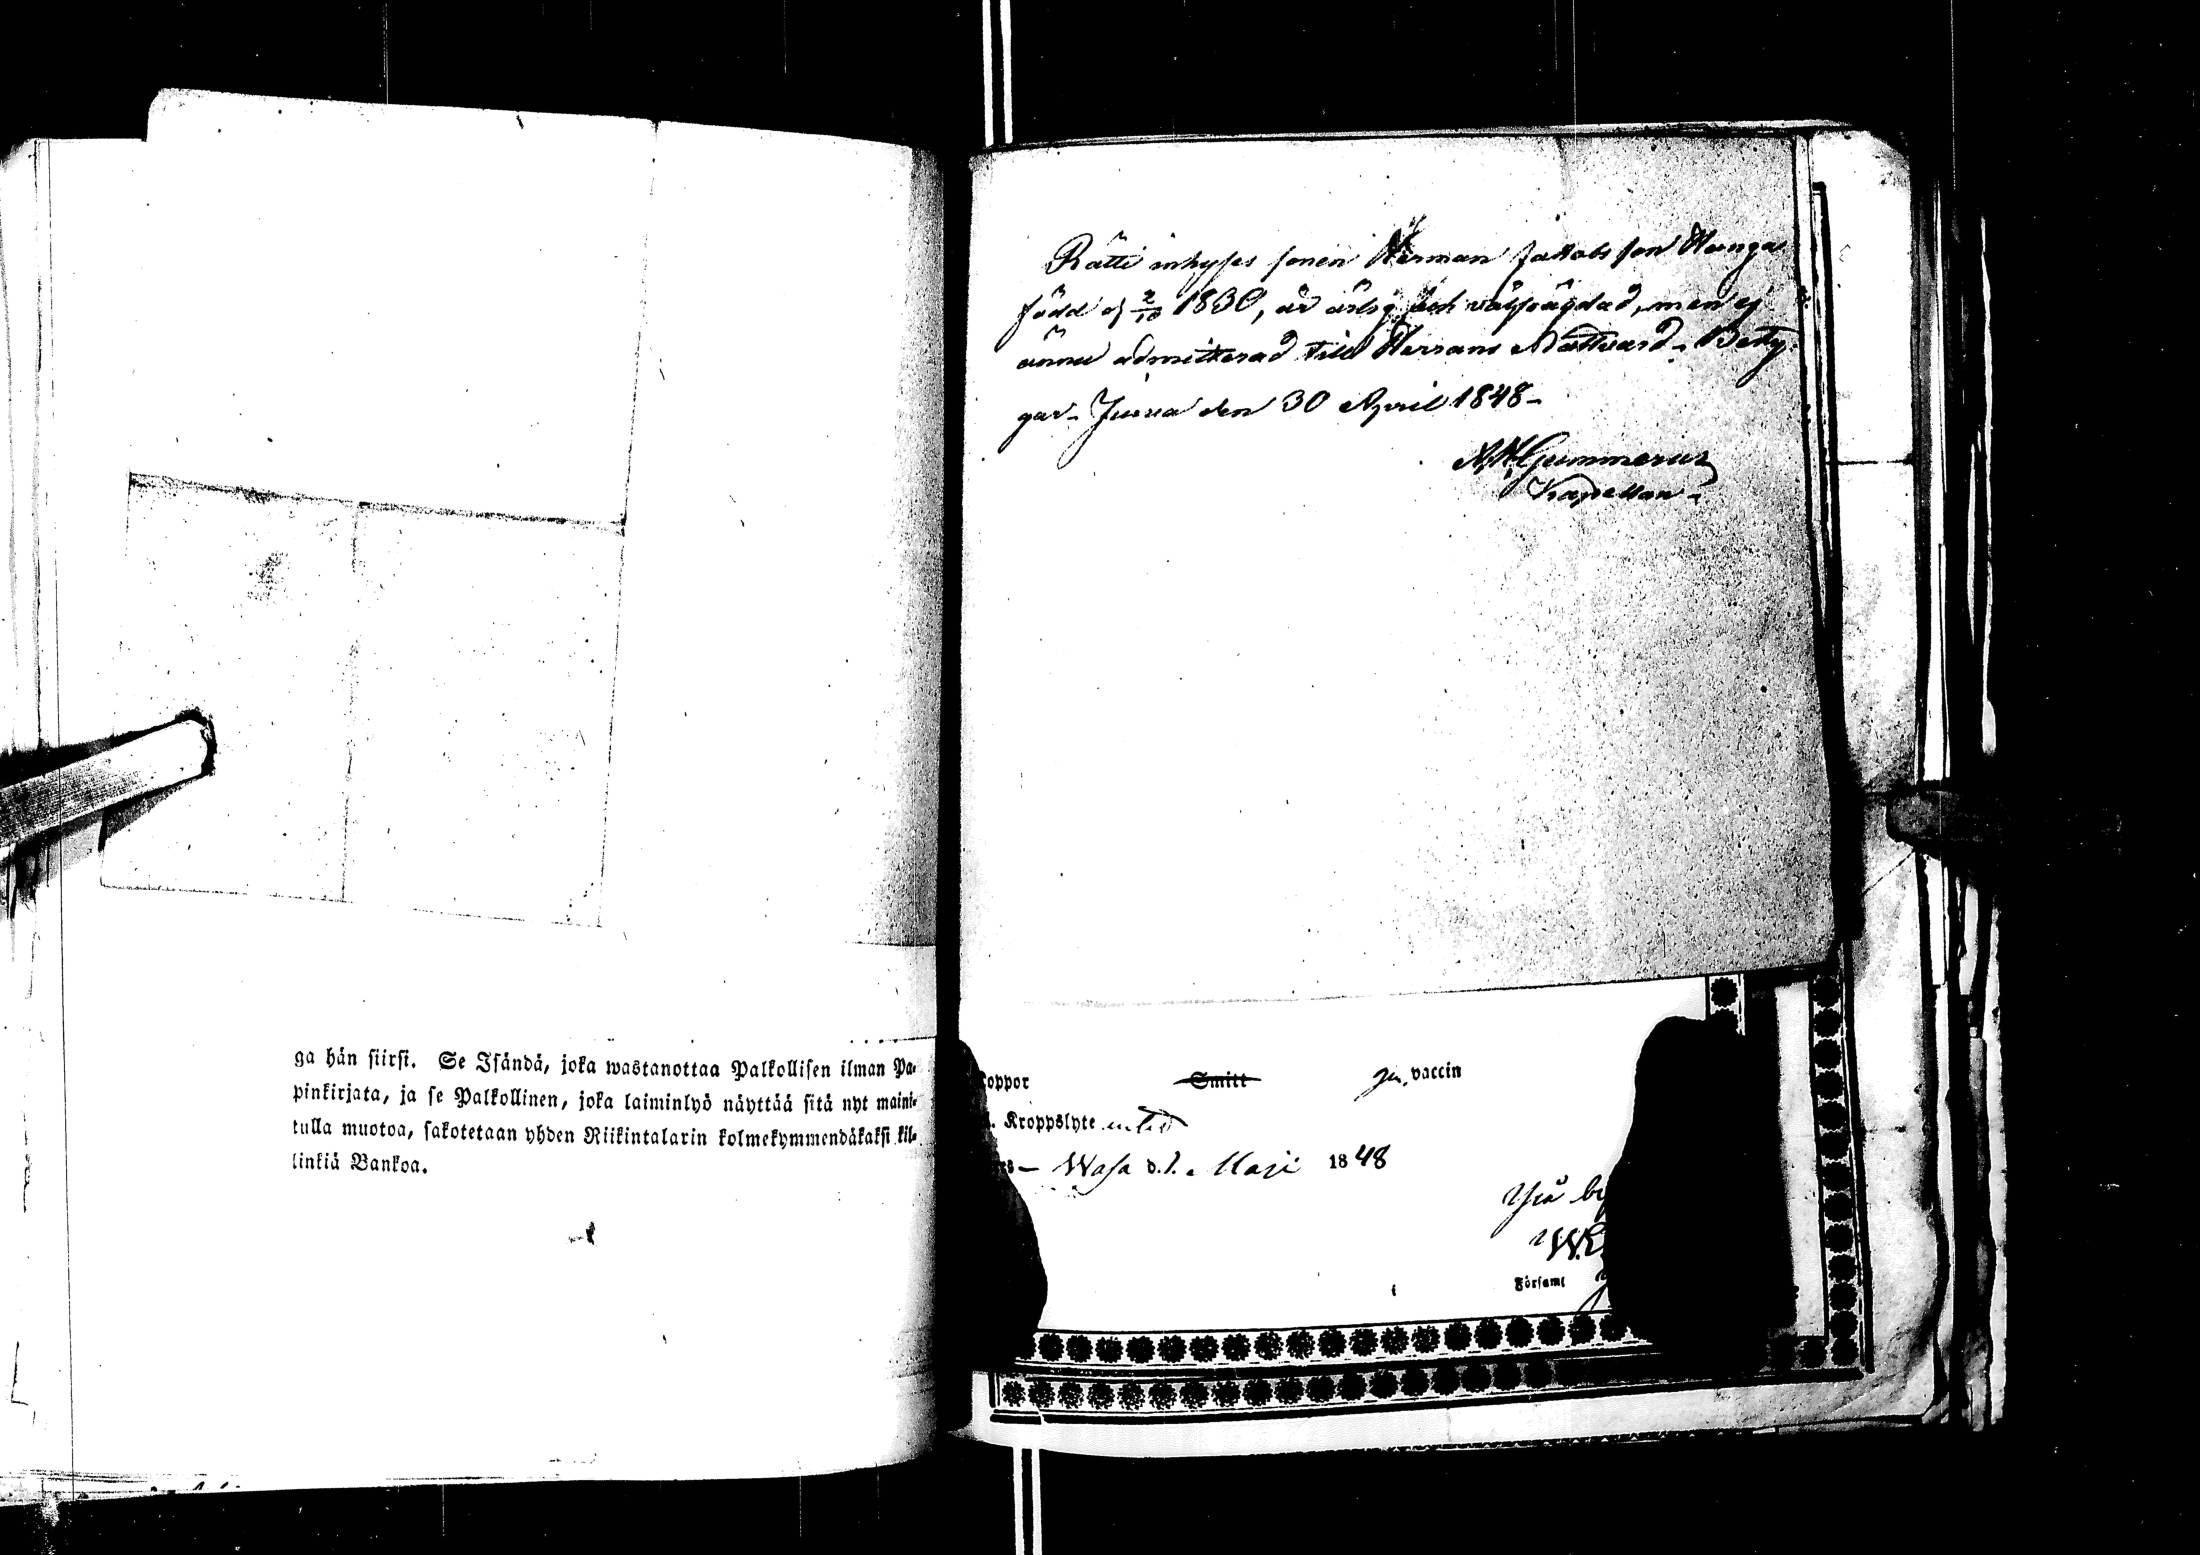 ga hän siirsi. Se Isändä, joka wastanottaa Palkollisen ilman Pa-
pinkirjata, ja se Palkollinen, joka laiminlyö näyttää sitä nyt maini-
tulla muotoa, sakotetaan yhden Riikintalarin kolmekymmendäkaksi kil-
linkiä Bankoa.
Rätti inhyses sonen Herman Jakobsson Hunga
född d 2/10 1830, är ärlig och välfrägdad, men ej
ännu admitterad till Herrans Nattvard. Bety-
gar. Jurva den 30 April 1848.
Gummerus
Kapellan
koppor Smitt gm vaccin
Kroppslyte utan
Wasa d. 1. Maji 1848
Församl